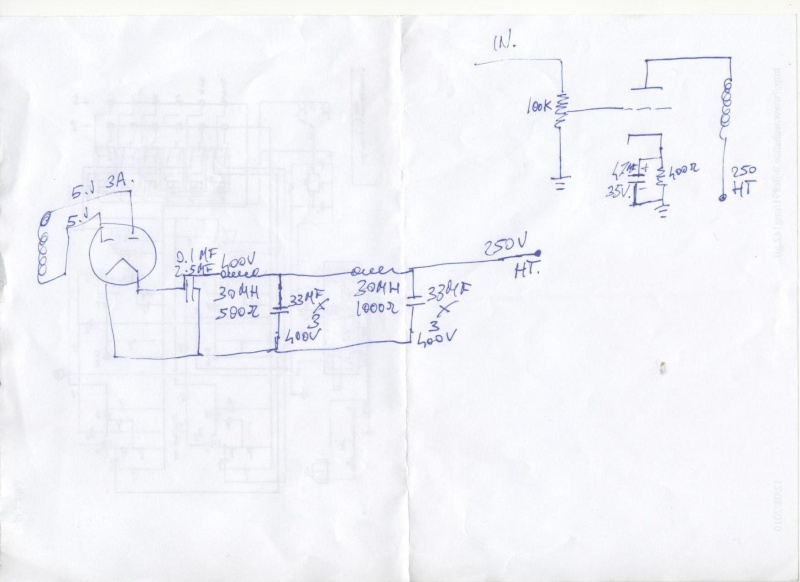 IN.
100K
4,7MF +
35V.
400Ω
250
HT
5.V 3A.
5.V
0.1MF
2.5MF
400V
30MH
500Ω
33MF
X
3
400V
30MH
1000Ω
33MF
X
3
400V
250V
HT.